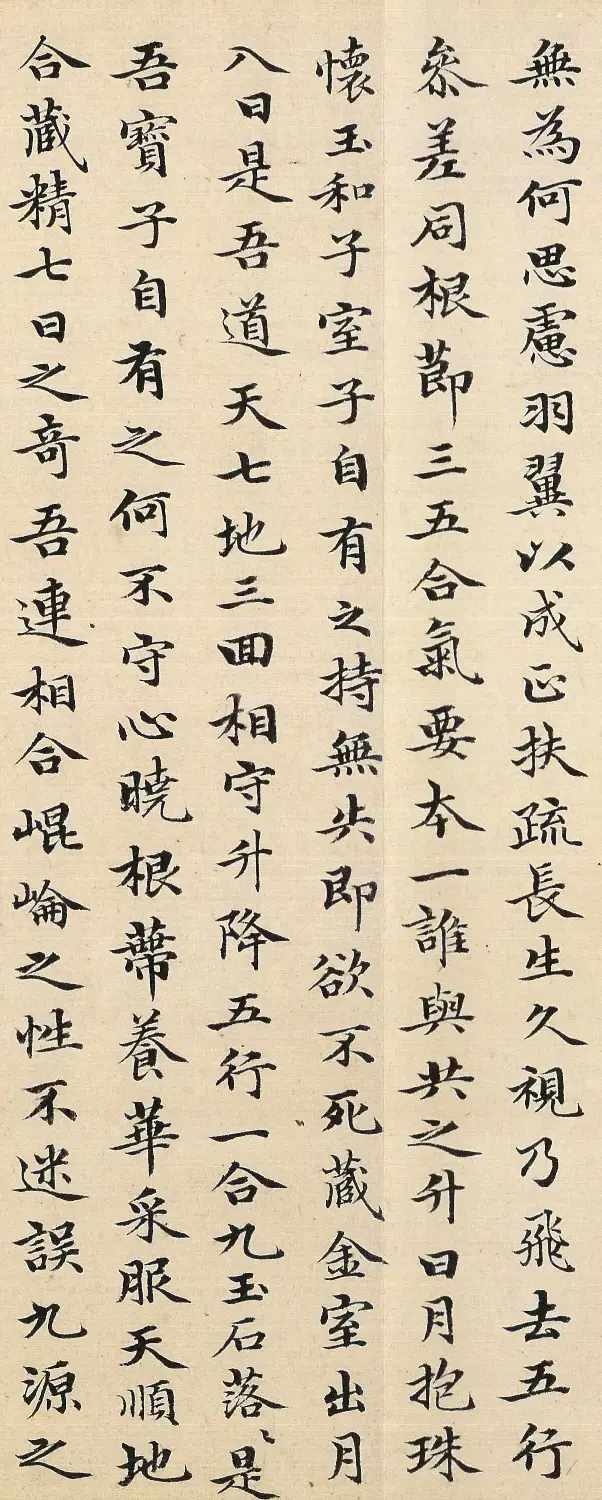 無為何思慮羽翼以成正扶疏長生久視乃飛去五行
叅差同根莭三五合氣要本一誰與共之升日月抱珠
懷玉和子室子自有之持無失即欲不死藏金室出月
入日是吾道天七地三回相守升降五行一合九玉石落〻是
吾寶子自有之何不守心曉根蔕養華采服天順地
合藏精七日之奇吾連相合崐崘之性不迷誤九源之